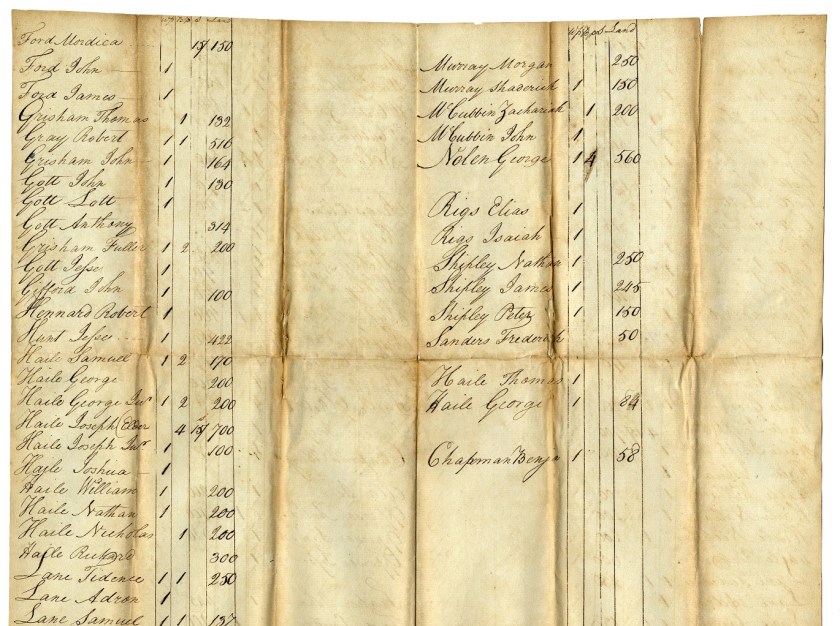 Land
Ford Mordica 15/ 150
Ford John — 1
Ford James — 1
Grisham Thomas 1 132
Gray Robert 1 1 516
Grisham John — 1 164
Gott John 1 130
Gott Lott — 1
Gott Anthony 314
Grisham Fuller 1 2 200
Gott Jesse 1
Gifford John 1 100
Hennard Robert 1
Hunt Jesse 1 422
Haile Samuel 1 2 170
Haile George 200
Haile George Junr 1 2 200
Haile Joseph (Elder 4 15/ 700
Haile Joseph Junr 1 100
Hayle Joshua — 1
Haile William 1 200
Haile Nathan 1 200
Haile Nicholas 1 200
Haile Richard 300
Lane Tidence 1 1 250
Lane Adron 1
Lane Samuel 1 1 137
Land
Murray Morgan 250
Murray Shaderick 1 150
McCubbin Zachariah 1 200
McCubbin John 1
Nolen George 1 4 560
Rigs Elias 1
Rigs Isaiah 1
Shipley Nathan 1 250
Shipley James 1 245
Shipley Peter 1 150
Sanders Frederick 50
Haile Thomas 1
Haile George 1 84
Chapman Benja 1 58